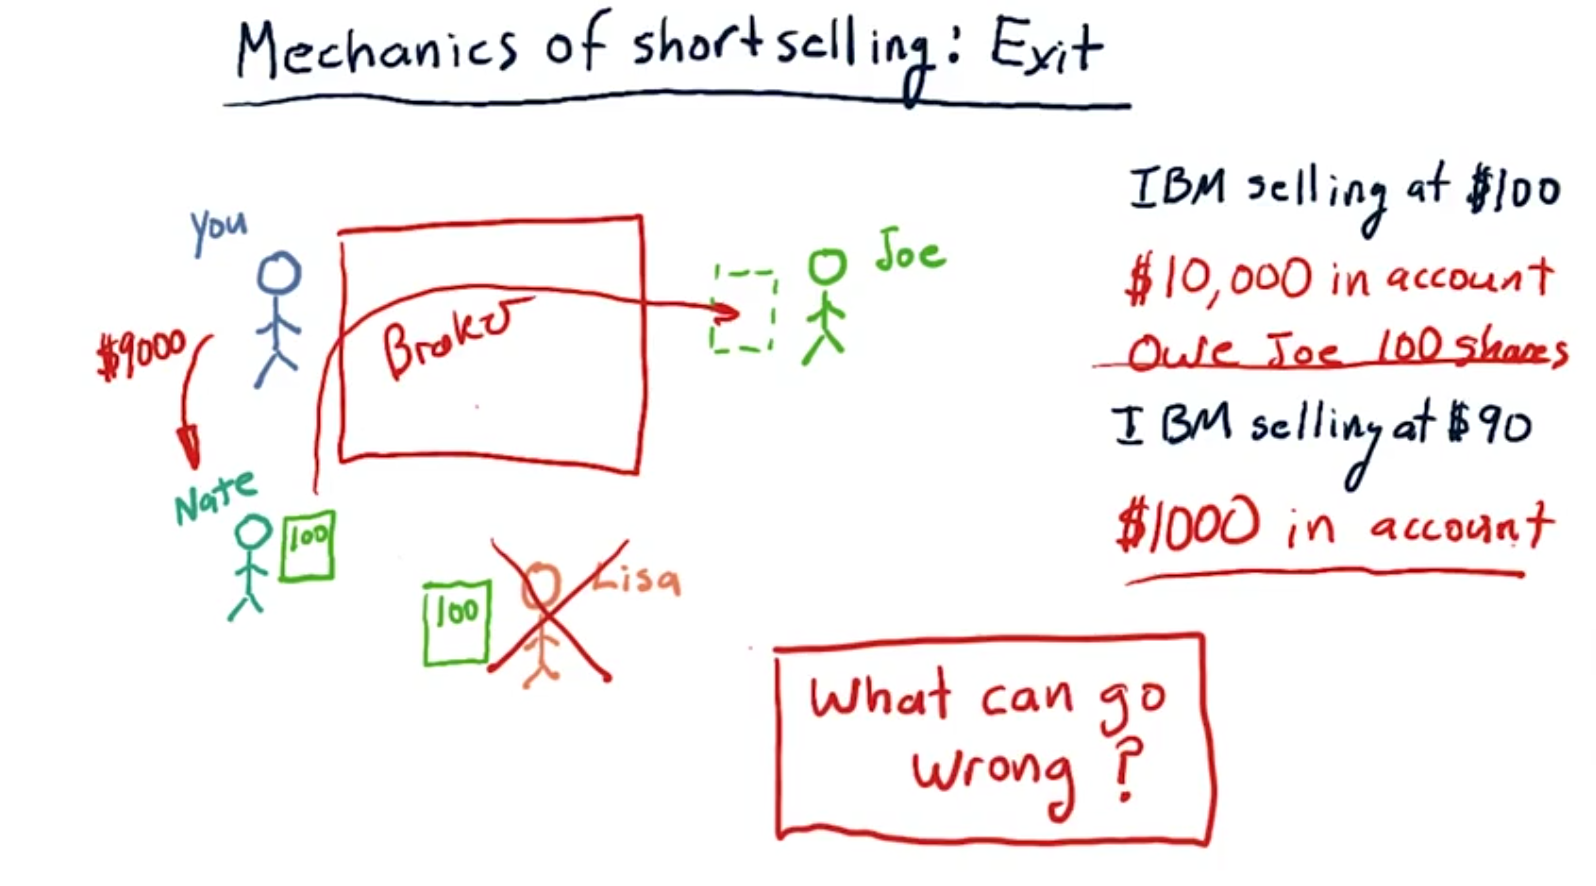 Mechanics of short selling: Exit
you
Joe
$9000
Broker
Nate
100
100
Lisa
IBM selling at $100
$10,000 in account
Owe Joe 100 shares
IBM selling at $90
$1000 in account
What can go
wrong ?